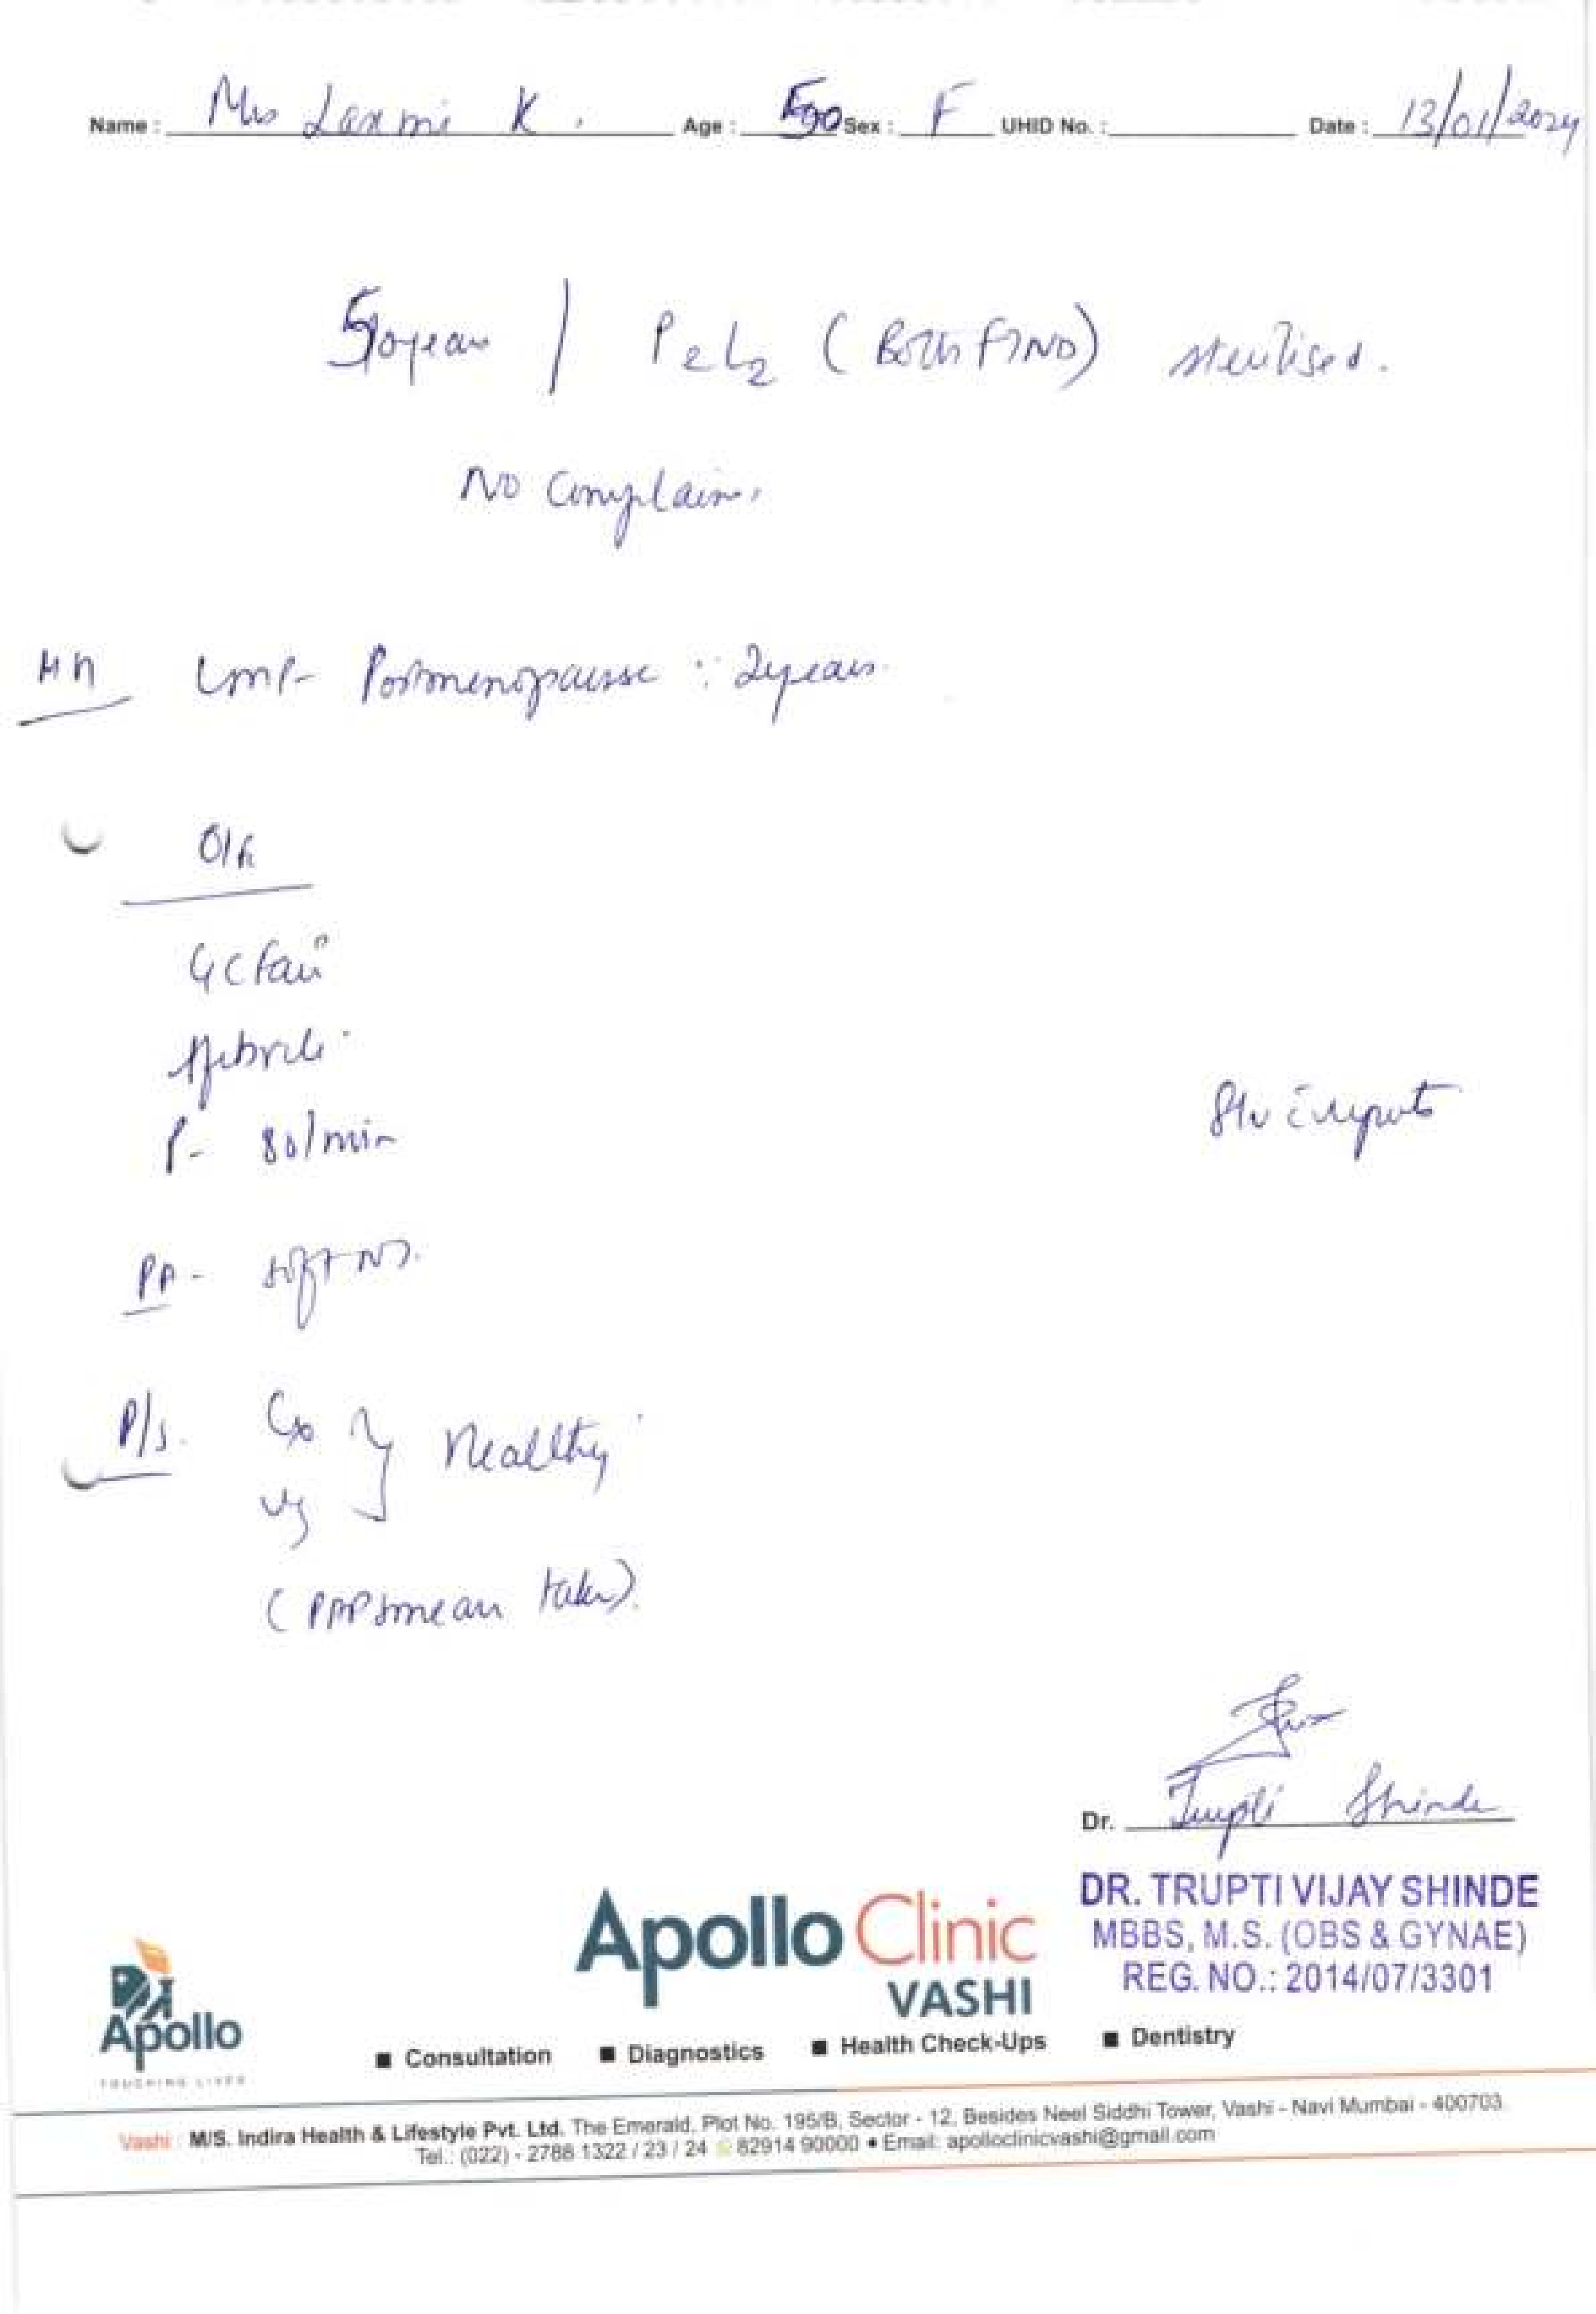 Name : Mrs Laxmi K. Age : 50 Sex : F UHID No. : Date : 13/01/2024
50 year / P2L2 (Both FTND) sterilised.
No Complain.
MH LMP- Postmenopause : 2years
O/E
GC fair
Afebrile
P- 80/min
PA- soft NT.
P/S. Cx } Healthy
Vg
(PAP smear taken).
F/u c reports
Dr. Trupti Shinde
DR. TRUPTI VIJAY SHINDE
MBBS, M.S. (OBS & GYNAE)
REG. NO.: 2014/07/3301
Apollo Clinic
VASHI
Apollo
TOUCHING LIVES
■ Consultation ■ Diagnostics ■ Health Check-Ups ■ Dentistry
Vashi : M/S. Indira Health & Lifestyle Pvt. Ltd. The Emerald, Plot No. 195/B, Sector - 12, Besides Neel Siddhi Tower, Vashi - Navi Mumbai - 400703.
Tel.: (022) - 2788 1322 / 23 / 24 82914 90000 • Email: apolloclinicvashi@gmail.com